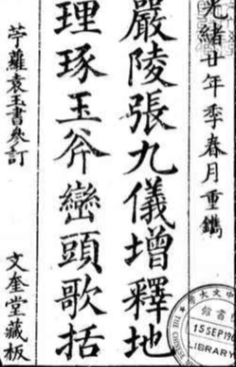 光緒廿年季春月重鐫
嚴陵張九儀增釋地
理琢玉斧巒頭歌括
苧蘿袁玉書參訂
文奎堂藏板
15 SEP 19
LIBRARY